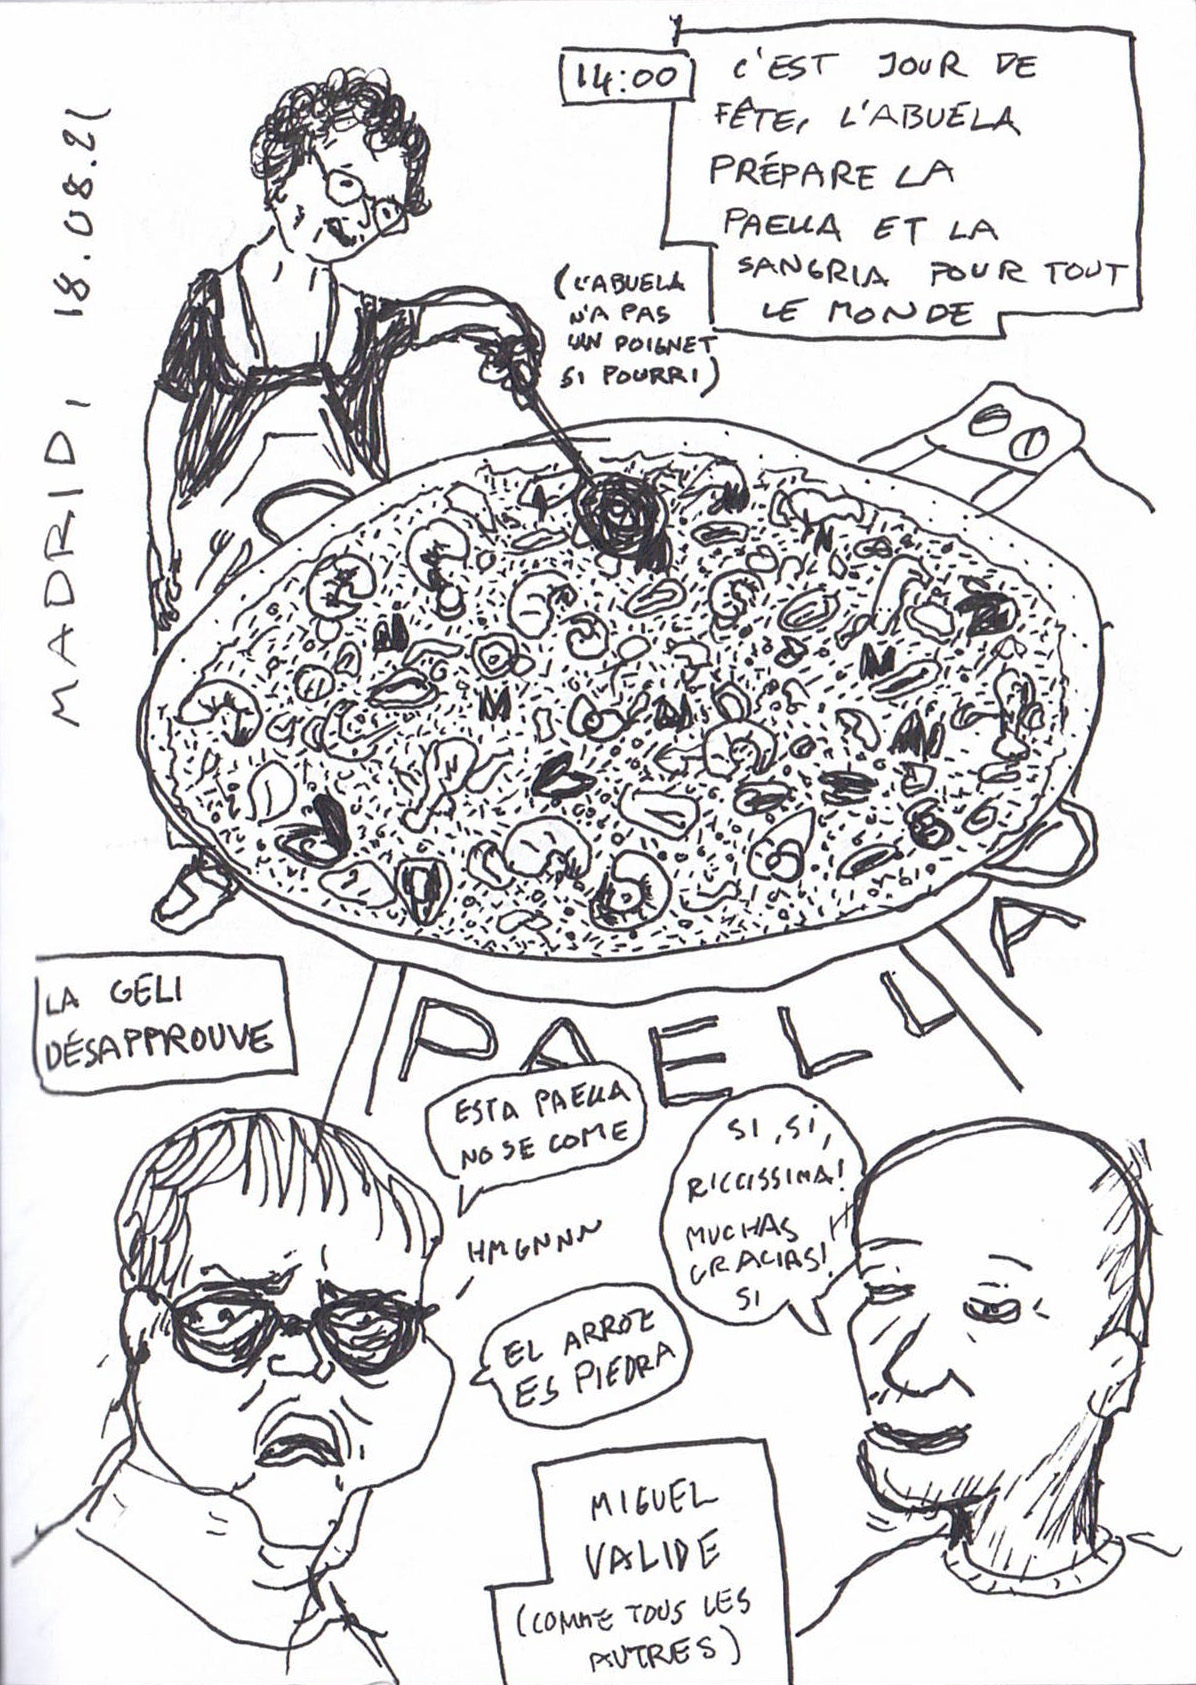 MADRID, 18.08.21
14:00
C'EST JOUR DE
FÊTE, L'ABUELA
PRÉPARE LA
PAELLA ET LA
SANGRIA POUR TOUT
LE MONDE
(L'ABUELA
N'A PAS
UN POIGNET
SI POURRI)
PAELLA
LA GELI
DÉSAPPROUVE
ESTA PAELLA
NO SE COME
HMGNNN
EL ARROZ
ES PIEDRA
SI, SI,
RICCISSIMA!
MUCHAS
GRACIAS!
SI
MIGUEL
VALIDE
(COMME TOUS LES
AUTRES)